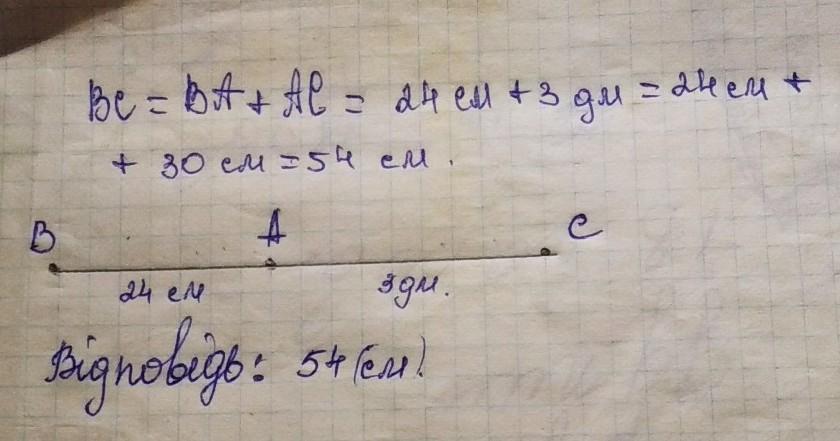 ВС = ВА + АС = 24 см + 3 дм = 24 см +
+ 30 см = 54 см.
В А С
24 см 3 дм.
Відповідь: 54 (см).